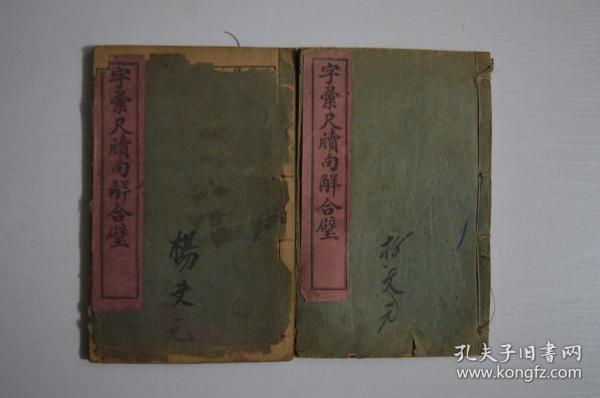 字彙尺牘句解合璧
楊文元
字彙尺牘句解合璧
杨文元
孔夫子旧书网
www.kongfz.com